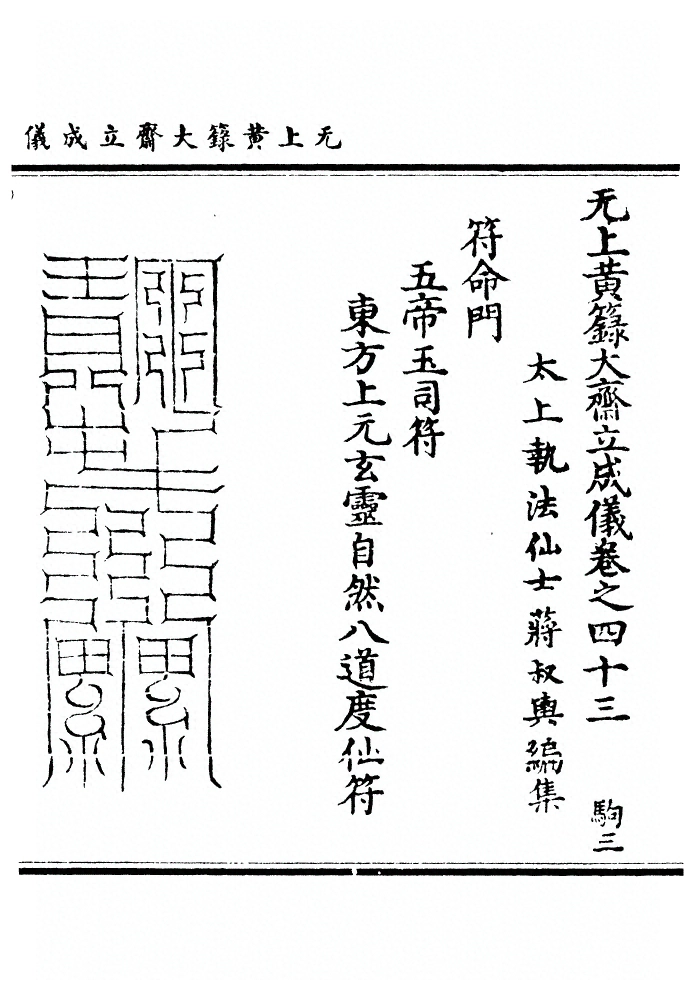 无上黃籙大齋立成儀
无上黃籙大齋立成儀卷之四十三　駒三
太上執法仙士蔣叔輿編集
符命門
五帝玉司符
東方上元玄靈自然八道度仙符